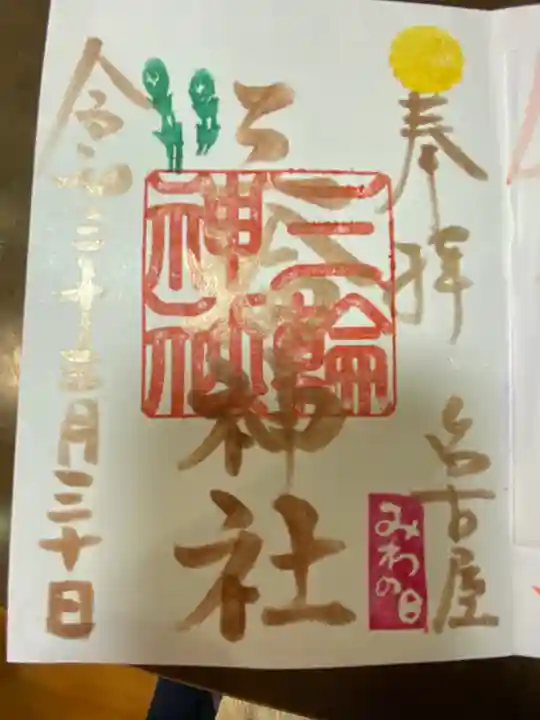 奉拝
名古屋
みわの日
三輪神社
三輪
神社
令和三月三十日